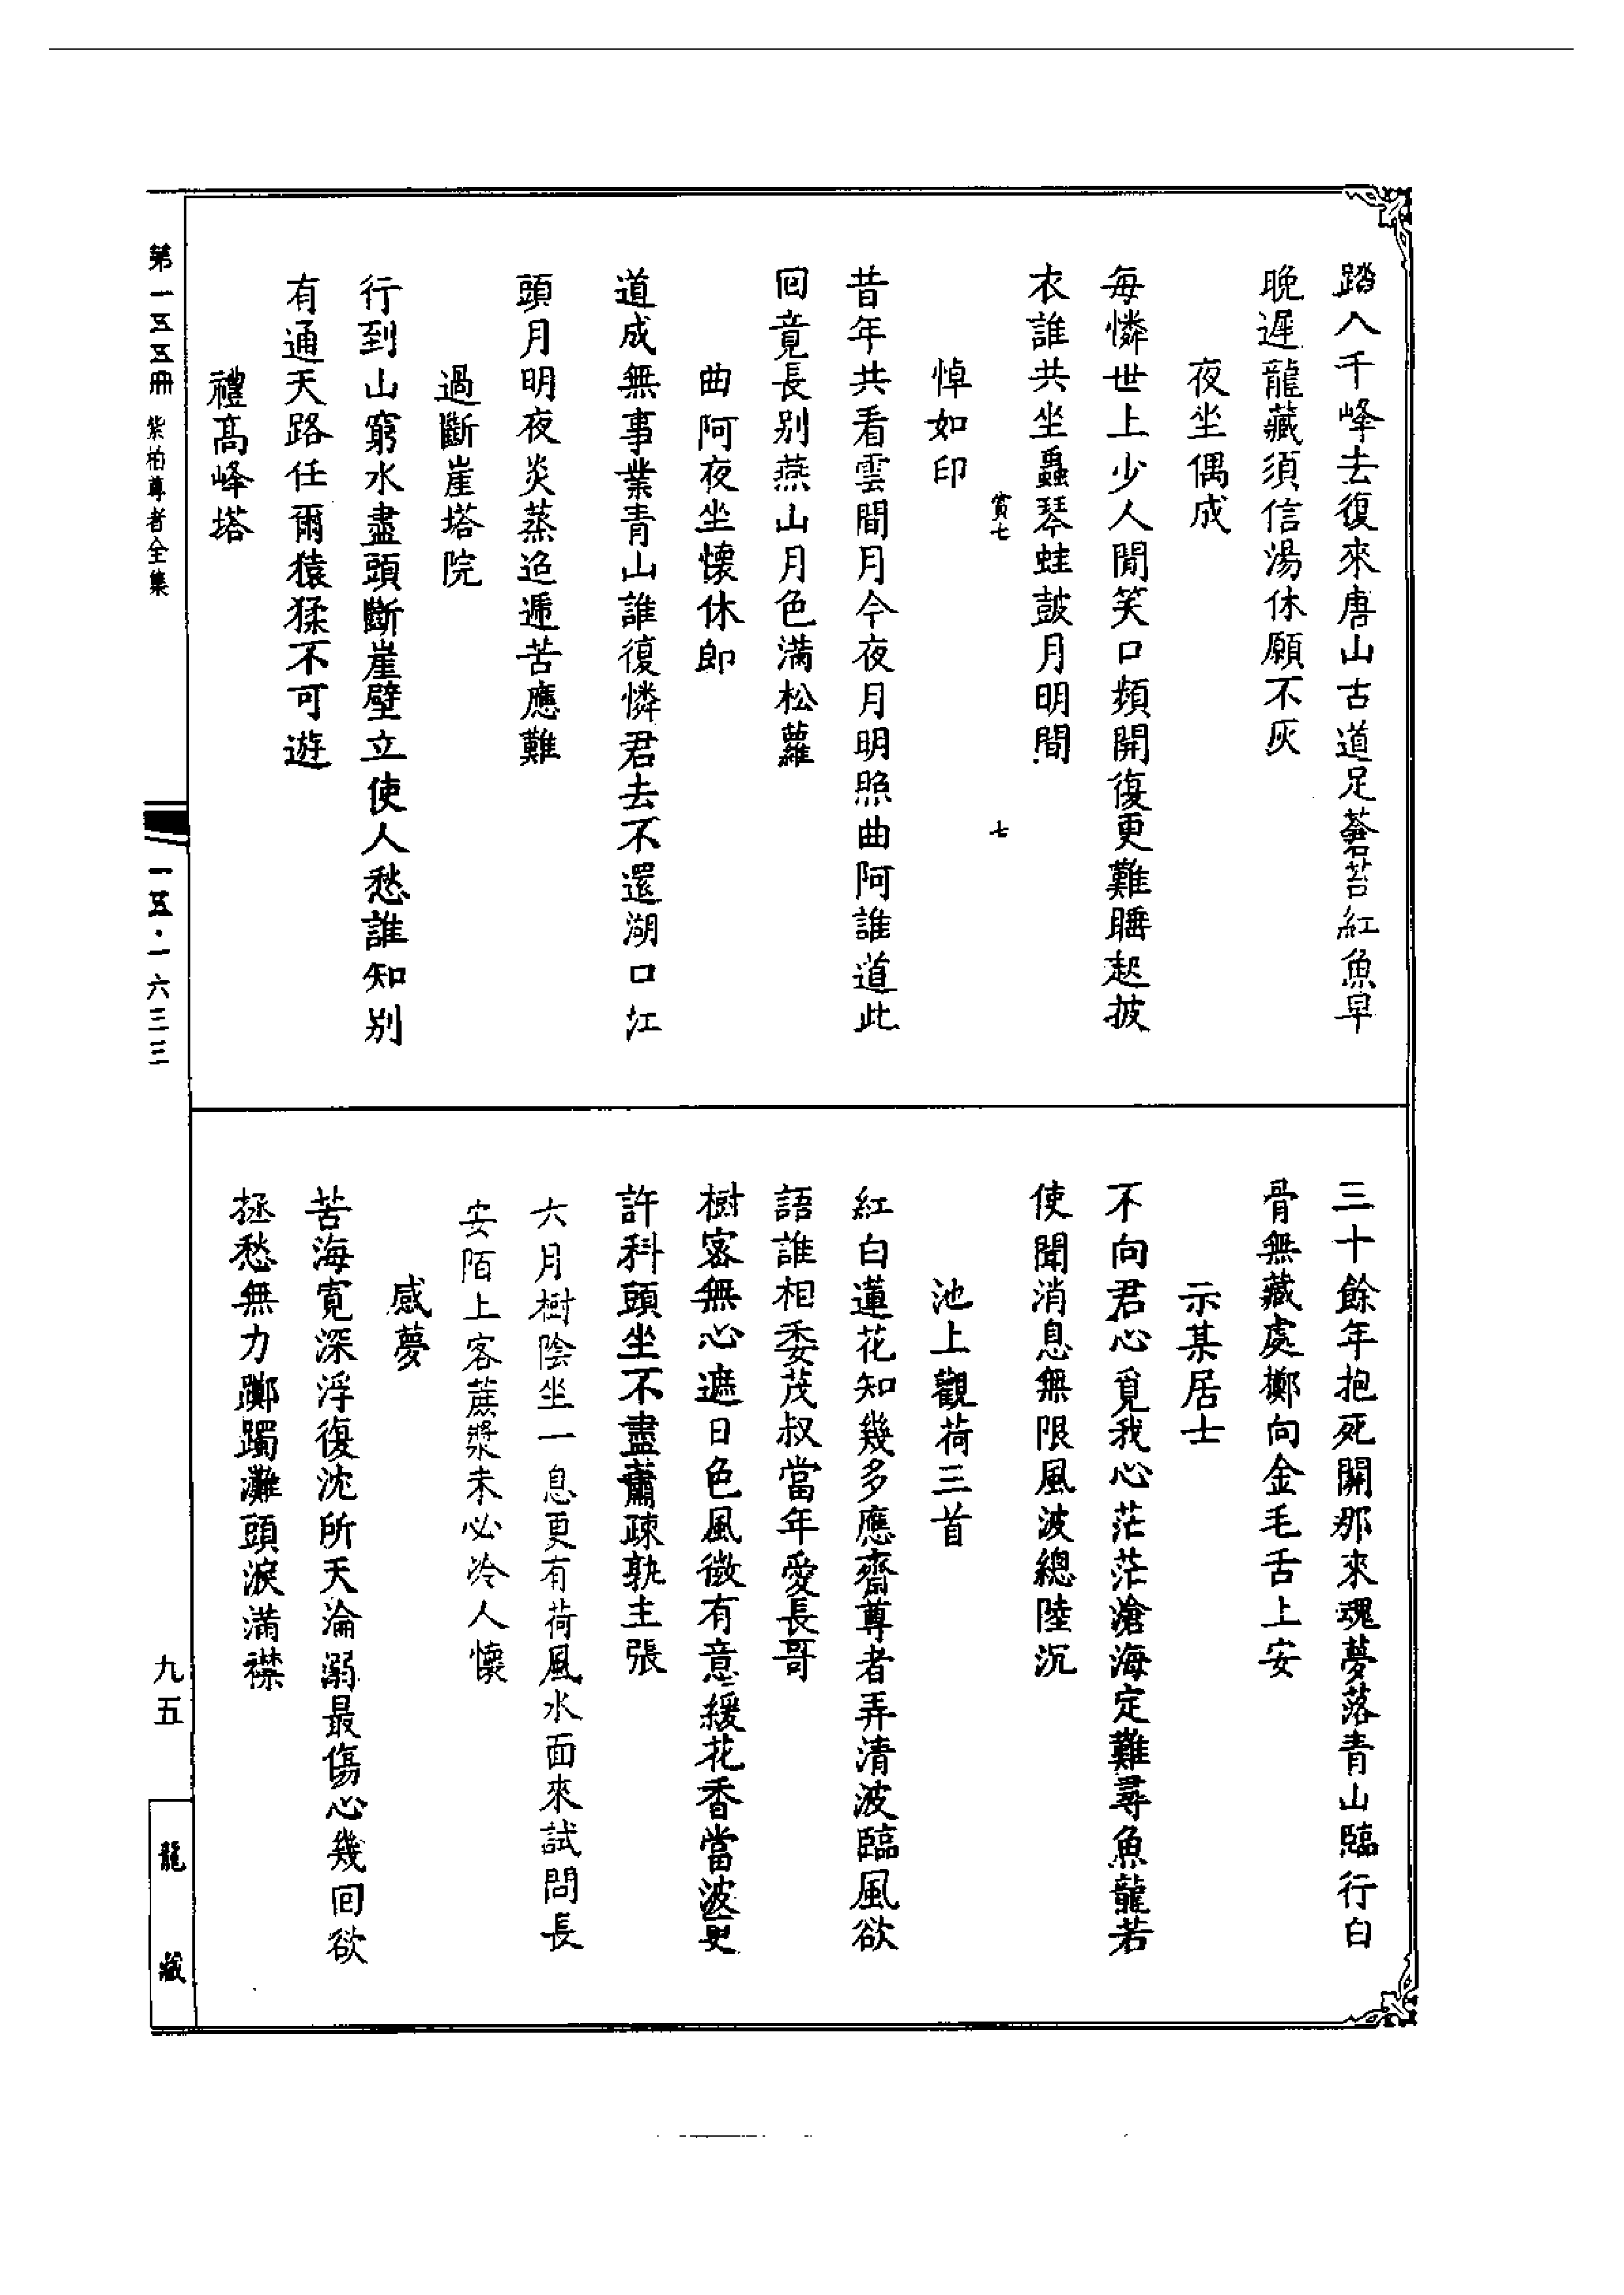 踏入千峰去復來唐山古道足蒼苔紅魚早
晚遲龍藏須信湯休願不灰
夜坐偶成
每憐世上少人閒笑口頻開復更難睡起披
衣誰共坐蟲琴蛙鼓月明間
賞七
七
悼如印
昔年共看雲間月今夜月明照曲阿誰道此
回竟長別燕山月色滿松蘿
曲阿夜坐懷休郎
道成無事業青山誰復憐君去不還湖口江
頭月明夜炎蒸迢遞苦應難
過斷崖塔院
行到山窮水盡頭斷崖壁立使人愁誰知別
有通天路任爾猿猱不可遊
禮高峰塔
三十餘年抱死關那來魂夢落青山臨行白
骨無藏處擲向金毛舌上安
示某居士
不向君心覓我心茫茫滄海定難尋魚龍若
使聞消息無限風波總陸沉
池上觀荷三首
紅白蓮花知幾多應齋尊者弄清波臨風欲
語誰相委茂叔當年愛長哥
樹密無心遮日色風微有意緩花香當波更
許科頭坐不盡蕭疎孰主張
六月樹陰坐一息更有荷風水面來試問長
安陌上客蔗漿未必冷人懷
感夢
苦海寬深浮復沈所天淪溺最傷心幾回欲
拯愁無力躑躅灘頭淚滿襟
第一五五冊 紫柏尊者全集
一五五·一六三三
九五
龍藏